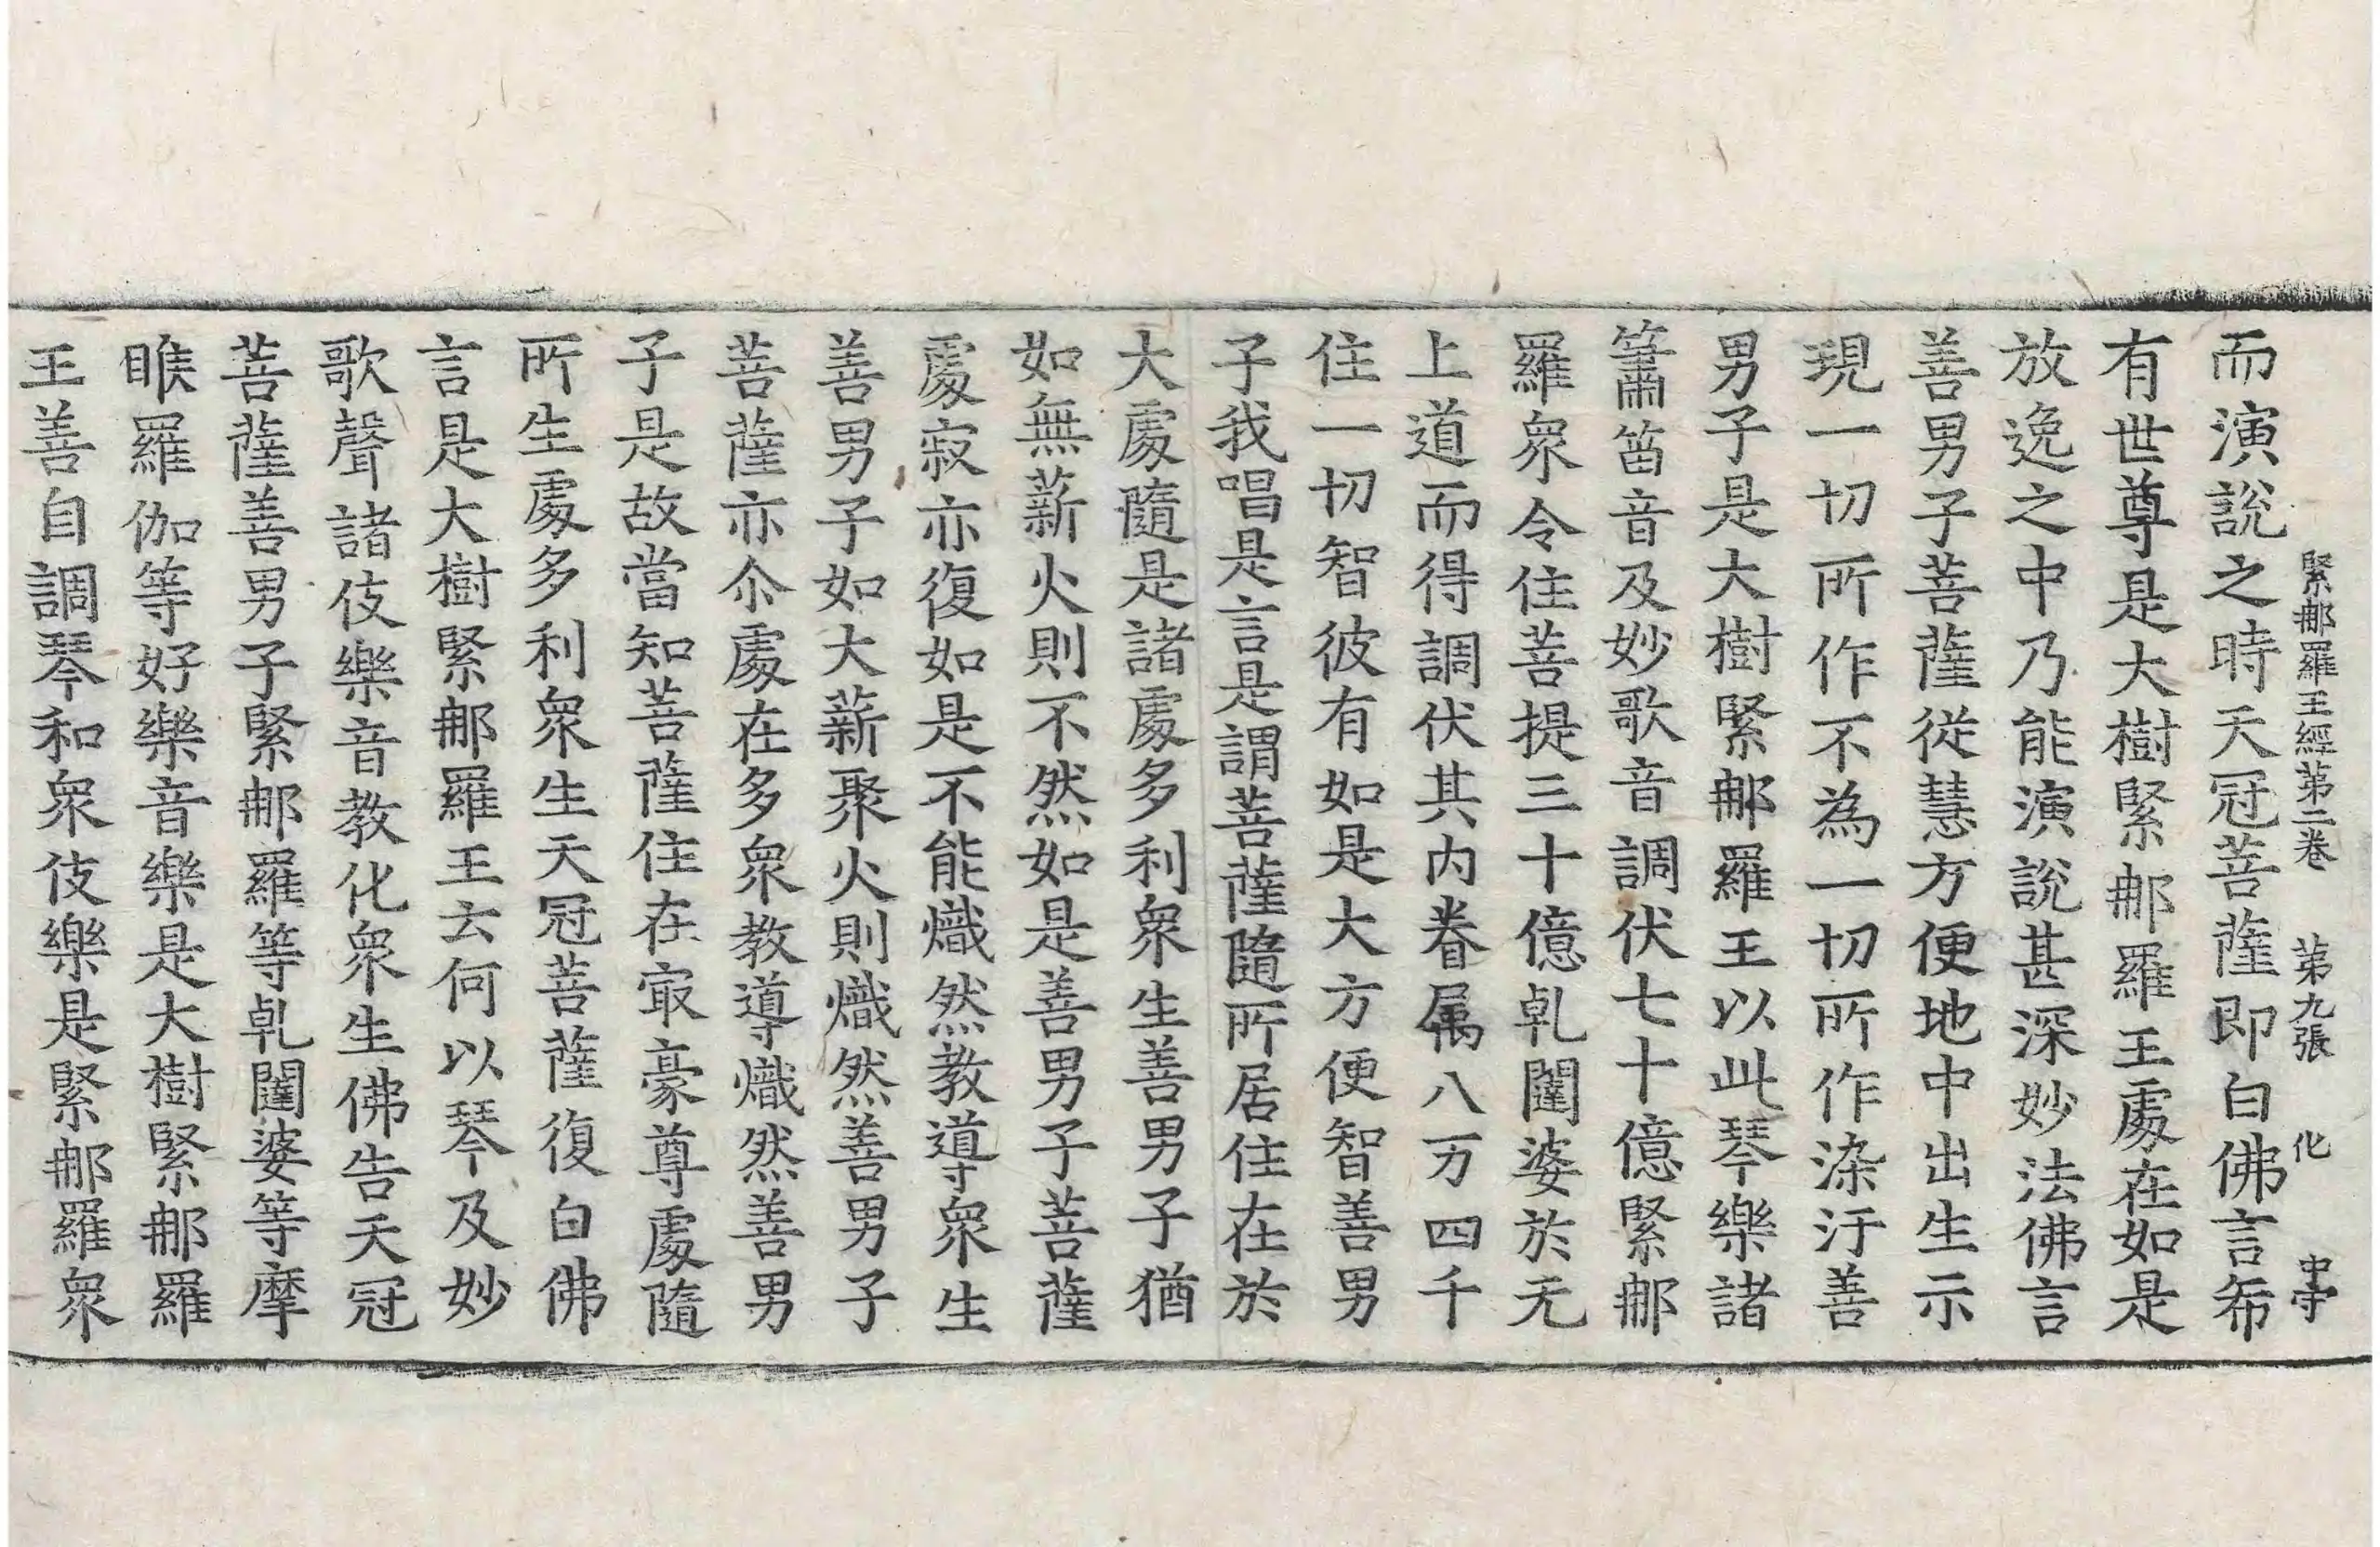 緊那羅王經第二卷 第九張 化 中守
而演說之時天冠菩薩即白佛言希
有世尊是大樹緊那羅王處在如是
放逸之中乃能演說甚深妙法佛言
善男子菩薩從慧方便地中出生示
現一切所作不為一切所作染汙善
男子是大樹緊那羅王以此琴樂諸
簫笛音及妙歌音調伏七十億緊那
羅衆令住菩提三十億乹闥婆於无
上道而得調伏其内眷属八万四千
住一切智彼有如是大方便智善男
子我唱是言是謂菩薩隨所居住在於
大處隨是諸處多利衆生善男子猶
如無薪火則不然如是善男子菩薩
處寂亦復如是不能熾然教導衆生
善男子如大薪聚火則熾然善男子
菩薩亦尒處在多衆教導熾然善男
子是故當知菩薩住在冣豪尊處隨
所生處多利衆生天冠菩薩復白佛
言是大樹緊那羅王云何以琴及妙
歌聲諸伎樂音教化衆生佛告天冠
菩薩善男子緊那羅等乹闥婆等摩
睺羅伽等好樂音樂是大樹緊那羅
王善自調琴和衆伎樂是緊那羅衆